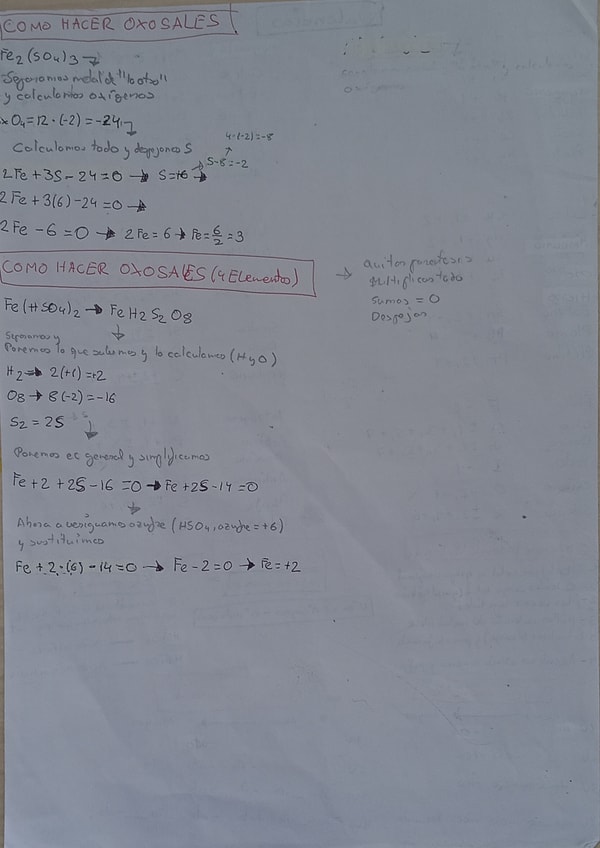 COMO HACER OXOSALES
Fe2(SO4)3
Separamos metal de "lo otro"
y calculamos oxígenos
O4=12·(-2)=-24
4·(-2)=-8
Calculamos todo y despejamos S
S-8=-2
2Fe+3S-24=0 → S=+6
2Fe+3(6)-24=0 →
2Fe-6=0 → 2Fe=6 → Fe=6/2=3
COMO HACER OXOSALES (4 Elementos)
→ quitar parentesis
Multiplicas todo
Sumas = 0
Despejar
Fe(HSO4)2 → FeH2S2O8
Separamos y
Ponemos lo que sabemos y lo calculamos (H y O)
H2 → 2(+1)=+2
O8 → 8(-2)=-16
S2=2S
Ponemos ec general y simplificamos
Fe+2+2S-16=0 → Fe+2S-14=0
Ahora averiguamo azufre (HSO4, azufre=+6)
y sustituimos
Fe+2·(6)-14=0 → Fe-2=0 → Fe=+2